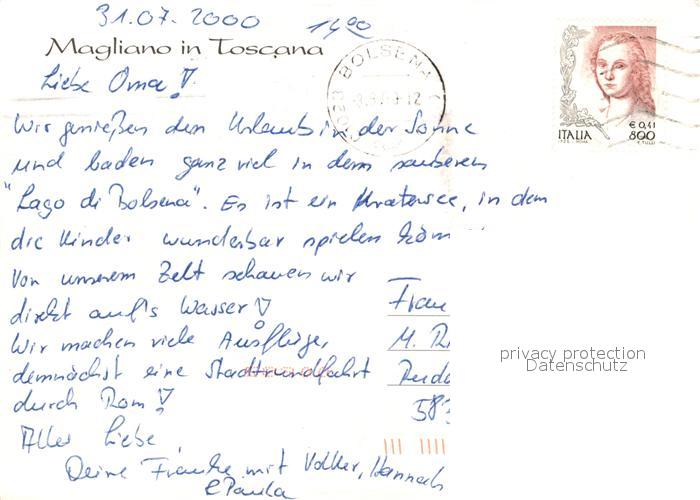 31.07.2000 14⁰⁰
Magliano in Toscana
BOLSENA
Liebe Oma!
ITALIA
€ 0,41
800
Wir genießen den Urlaub in der Sonne
und baden ganz viel in dem sauberen
"Lago di Bolsena". Es ist ein Kratersee, in dem
die Kinder wunderbar spielen könn
Von unserem Zelt schauen wir
direkt auf's Wasser!
Wir machen viele Ausflüge,
demnächst eine Stadtrundfahrt
durch Rom!
Alles Liebe
Deine Frauke mit Volker, Hannah
& Paula
Frau
M. R
583
privacy protection
Datenschutz